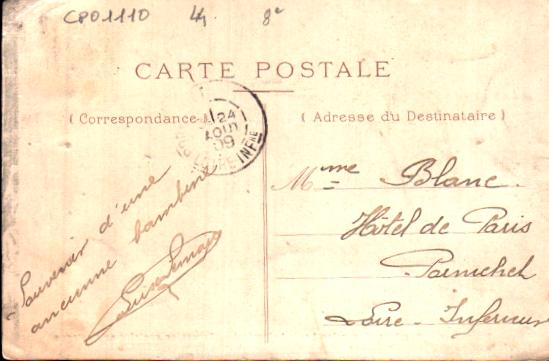 CPO1110 4f 8e
CARTE POSTALE
( Correspondance )
( Adresse du Destinataire )
24
AOUT
09
INFRE
Souvenir d'une
ancienne bambine
Mme Blanc.
Hôtel de Paris
Pornichet
Loire-Inferieure